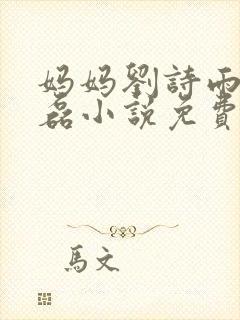 妈妈劉詩雨
磊小說免費
馬文